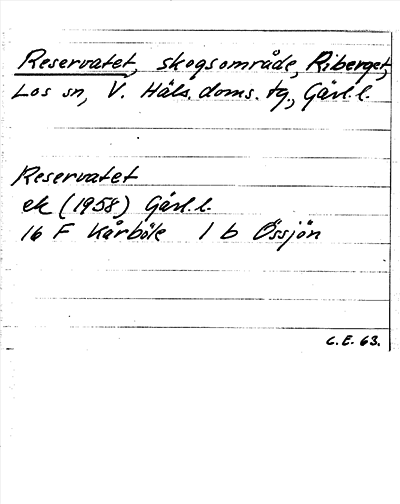 Reservatet, skogsområde, Riberget,
Los sn, V. Häls. doms. tg., Gävl. l.
Reservatet
ek (1958) Gävl. l.
16 F Kårböle 1 b Össjön
C.E. 63.